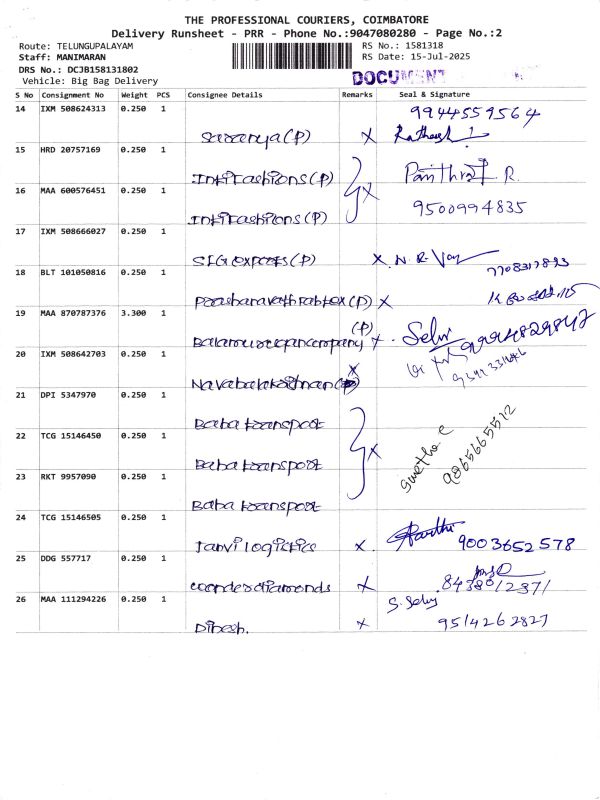 THE PROFESSIONAL COURIERS, COIMBATORE
Delivery Runsheet - PRR - Phone No.:9047080280 - Page No.:2
Route: TELUNGUPALAYAM
RS No.: 1581318
Staff: MANIMARAN
RS Date: 15-Jul-2025
DRS No.: DCJB158131802
Vehicle: Big Bag Delivery
DOCUMENT
S No Consignment No Weight PCS Consignee Details Remarks Seal & Signature
14 IXM 508624313 0.250 1
9944559564
Saranya(P) X
15 HRD 20757169 0.250 1
Intifashions(P) X
16 MAA 600576451 0.250 1
9500994835
Intifashions(P)
17 IXM 508666027 0.250 1
SIG exports(P) X N.R.
18 BLT 101050816 0.250 1
7708317893
(P) X
19 MAA 870787376 3.300 1
(P)
X Selvi 9994829842
20 IXM 508642703 0.250 1
X
21 DPI 5347970 0.250 1
Baba transport
22 TCG 15146450 0.250 1
Baba transport X
Swetha e
9865665512
23 RKT 9957090 0.250 1
Baba transport
24 TCG 15146505 0.250 1
Janvi logistics X 9003652578
25 DDG 557717 0.250 1
wonder diamonds X 8438012371
26 MAA 111294226 0.250 1
S. Selvi
Dinesh. X 9514262827